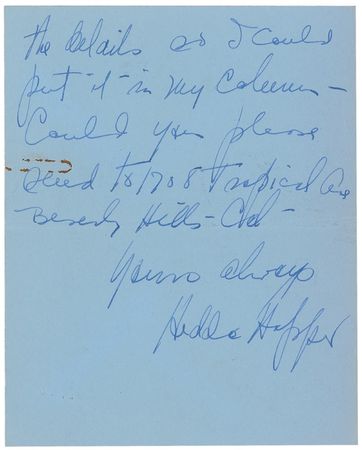 the Details so I could
put "it" in my Column -
Could you please
send to 1708 Tropical Ave
Beverly Hills - Cal -
Yours always
Hedda Hopper